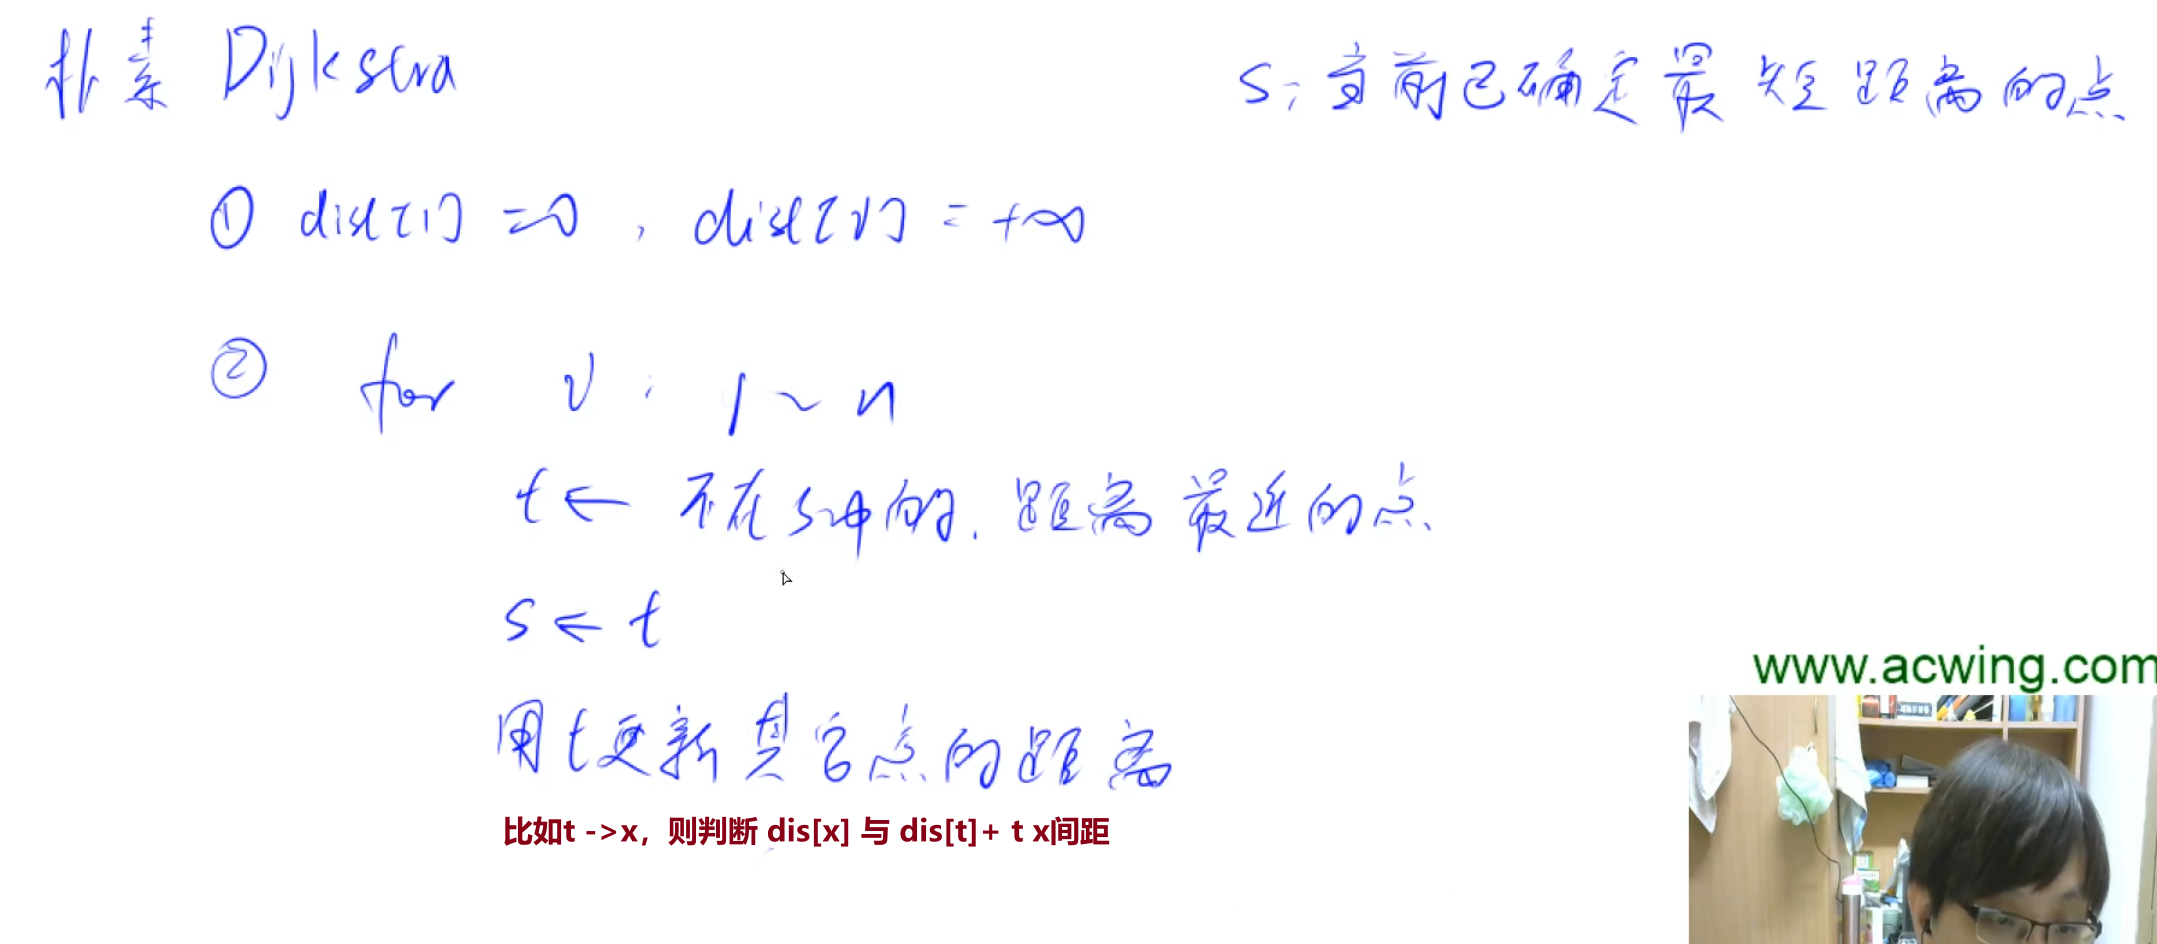 朴素 Dijkstra
S: 当前已确定最短距离的点
① dist[1] = 0, dist[i] = +∞
② for i : 1 ~ n
t ← 不在S中的, 距离最近的点
S ← t
用t更新其它点的距离
比如t ->x，则判断 dis[x] 与 dis[t]+ t x间距
www.acwing.com